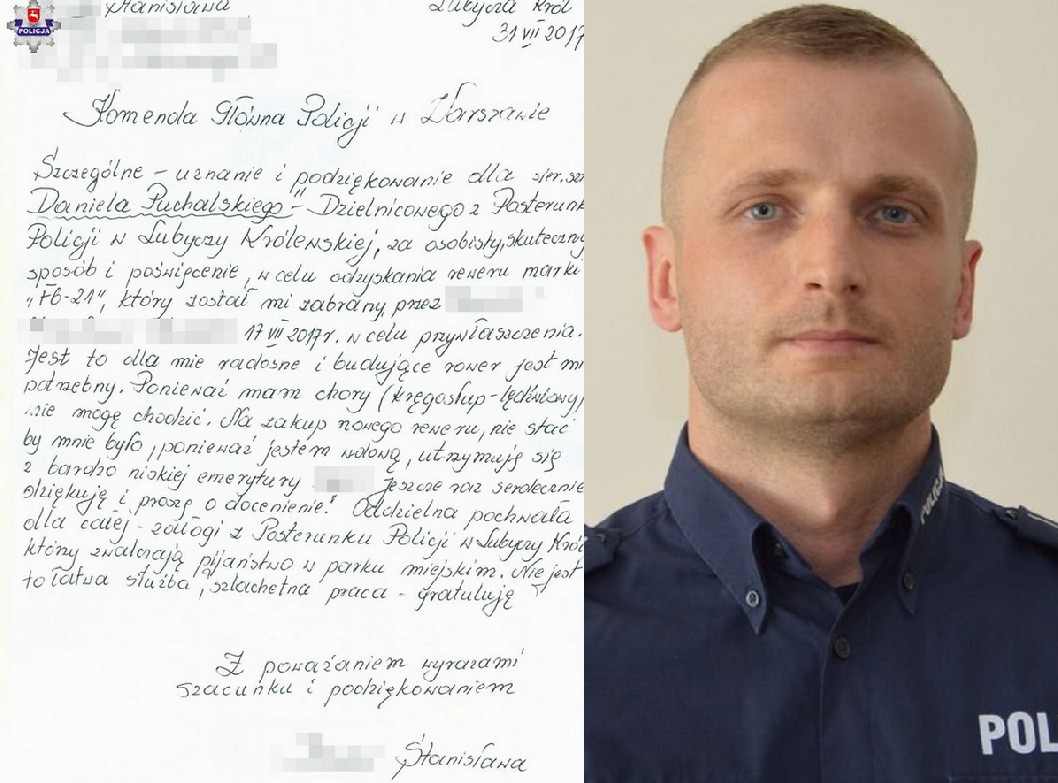 POLICJA
Stanisława
Lubycza Król
31 VII 2017
Komenda Główna Policji w Warszawie
Szczególne - uznanie i podziękowanie dla sier.sz
Daniela Puchalskiego" - Dzielnicowego z Posterunk
Policji w Lubyczy Królewskiej, za osobisty, skuteczny
sposób i poświęcenie, w celu odzyskania roweru marki
"F6-21", który został mi zabrany przez
17 VII 2017r. w celu przywłaszczenia.
Jest to dla mnie radosne i budujące rower jest mi
potrzebny. Ponieważ mam chory (kręgosłup-lędźwiowy)
nie mogę chodzić. Na zakup nowego roweru, nie stać
by mnie było, ponieważ jestem wdową, utrzymuję się
z bardzo niskiej emerytury Jeszcze raz serdecznie
dziękuję i proszę o docenienie! Oddzielna pochwała
dla całej - załogi z Posterunku Policji w Lubyczy Król
który zwalczają pijaństwo w parku miejskim. Nie jest
to łatwa służba, szlachetna praca - gratuluję
Z poważaniem wyrazami
szacunku i podziękowaniem
Stanisława
POLICJA
POL